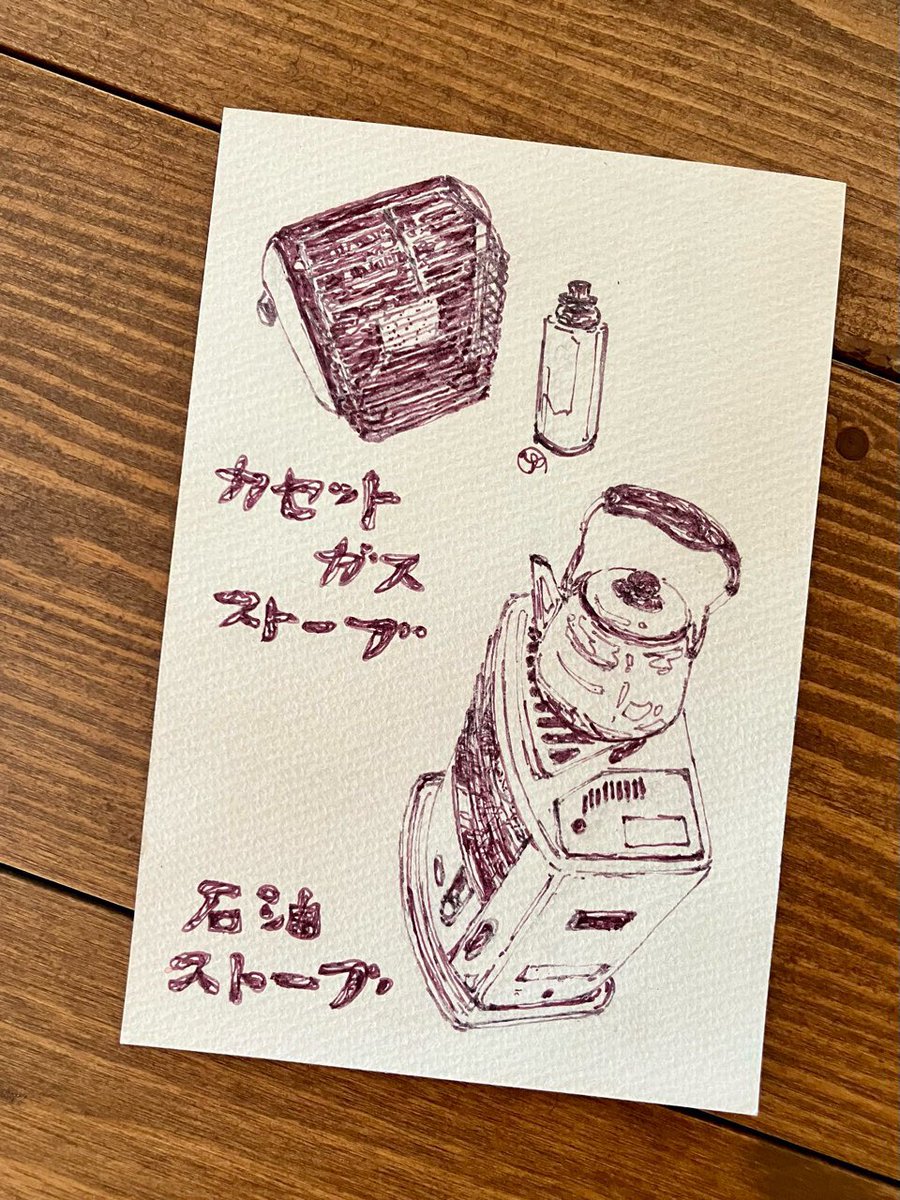 カセット
ガス
ストーブ
石油
ストーブ